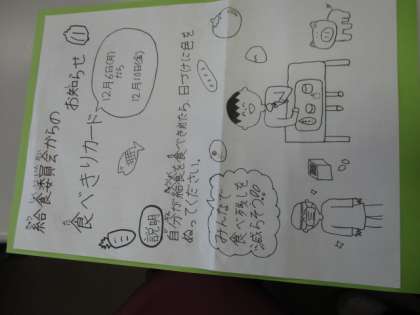 給食委員会からの
お知らせ
食べきりカード
12月6日(月)
から
12月10日(金)
説明
自分が給食を食べきれたら、日づけに色を
ぬってください。
みんなで
食べ残しを
減らそう!00